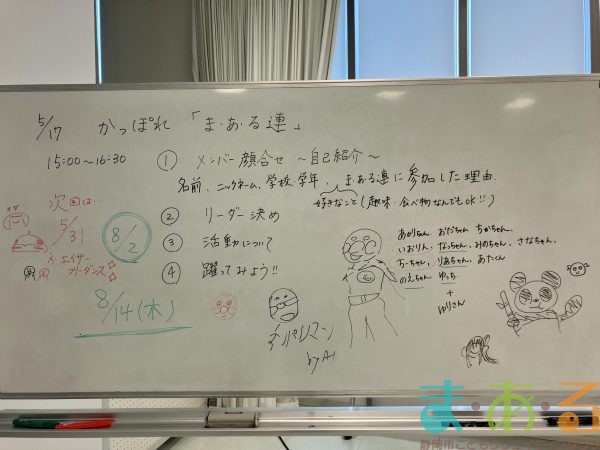 5/17 かっぽれ 「ま・あ・る連」
15:00～16:30 ① メンバー顔合せ ～自己紹介～
名前、ニックネーム、学校、学年、ま・ある連に参加した理由
好きなこと(趣味・食べ物なんでもOK!!)
② リーダー決め
③ 活動について
④ 踊ってみよう!!
次回は…
5/31
エイサー
フリーダンス
8/2
8/14(木)
デパリマン
by A1
あかりちゃん おだちゃん ちかちゃん
いおりん、なっちゃん、みのちゃん、さなちゃん、
ちーちゃん、りあちゃん、あたくん
のえちゃん、ゆっち
+
ゆりさん
ま・あ・る
静岡市こども